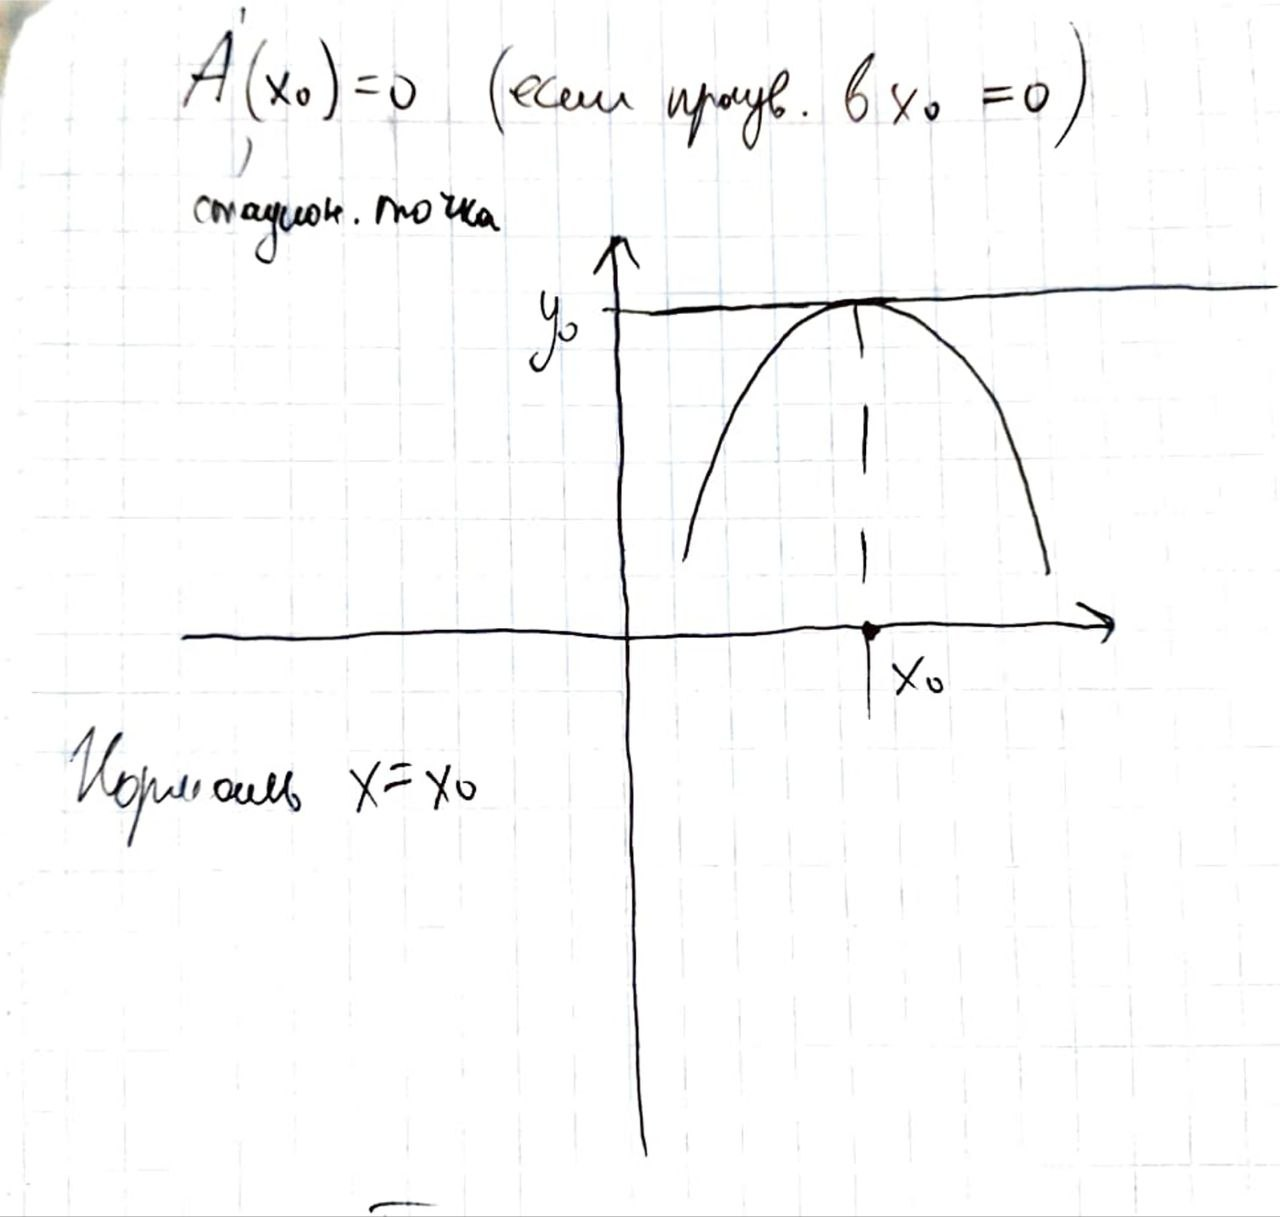 A'(x₀)=0 (если произв. в x₀ =0)
стацион. точка
y₀
x₀
Нормаль x=x₀